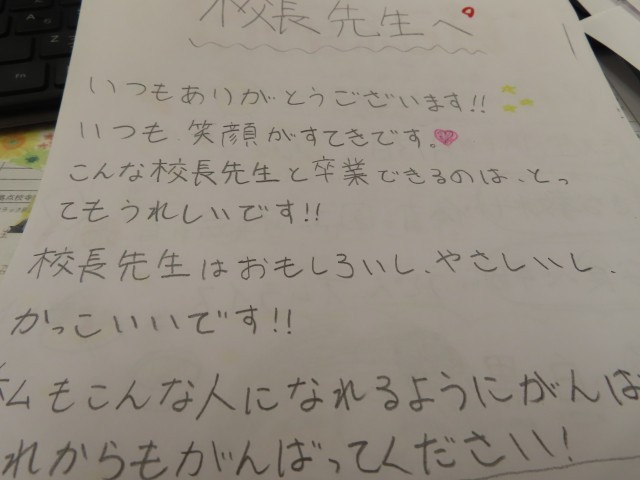 校長先生へ
いつもありがとうございます!!
いつも笑顔がすてきです。
こんな校長先生と卒業できるのは、とっ
てもうれしいです!!
校長先生はおもしろいし、やさしいし、
かっこいいです!!
私もこんな人になれるようにがんば
れからもがんばってください!